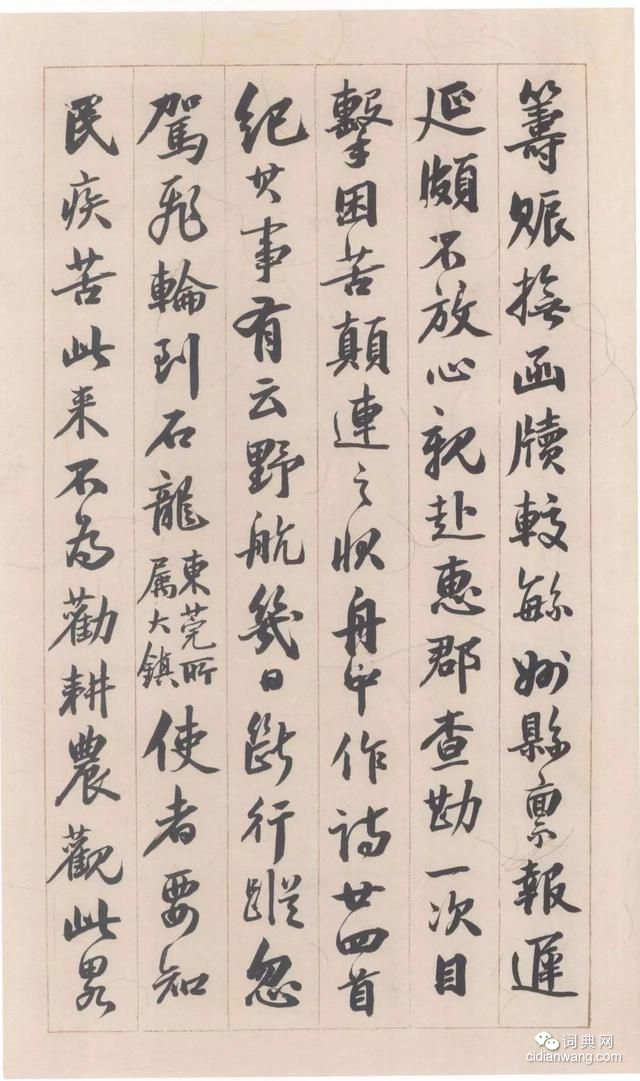 籌賑撫函牘較繇州縣禀報遲
延頗不放心親赴惠郡查勘一次目
擊困苦顛連之狀舟中作詩廿四首
紀其事有云野航幾日斷行蹤忽
駕飛輪到石龍東莞所屬大鎮使者要知
民疾苦此来不為勸耕農觀此畧
词典网
cidianwang.com